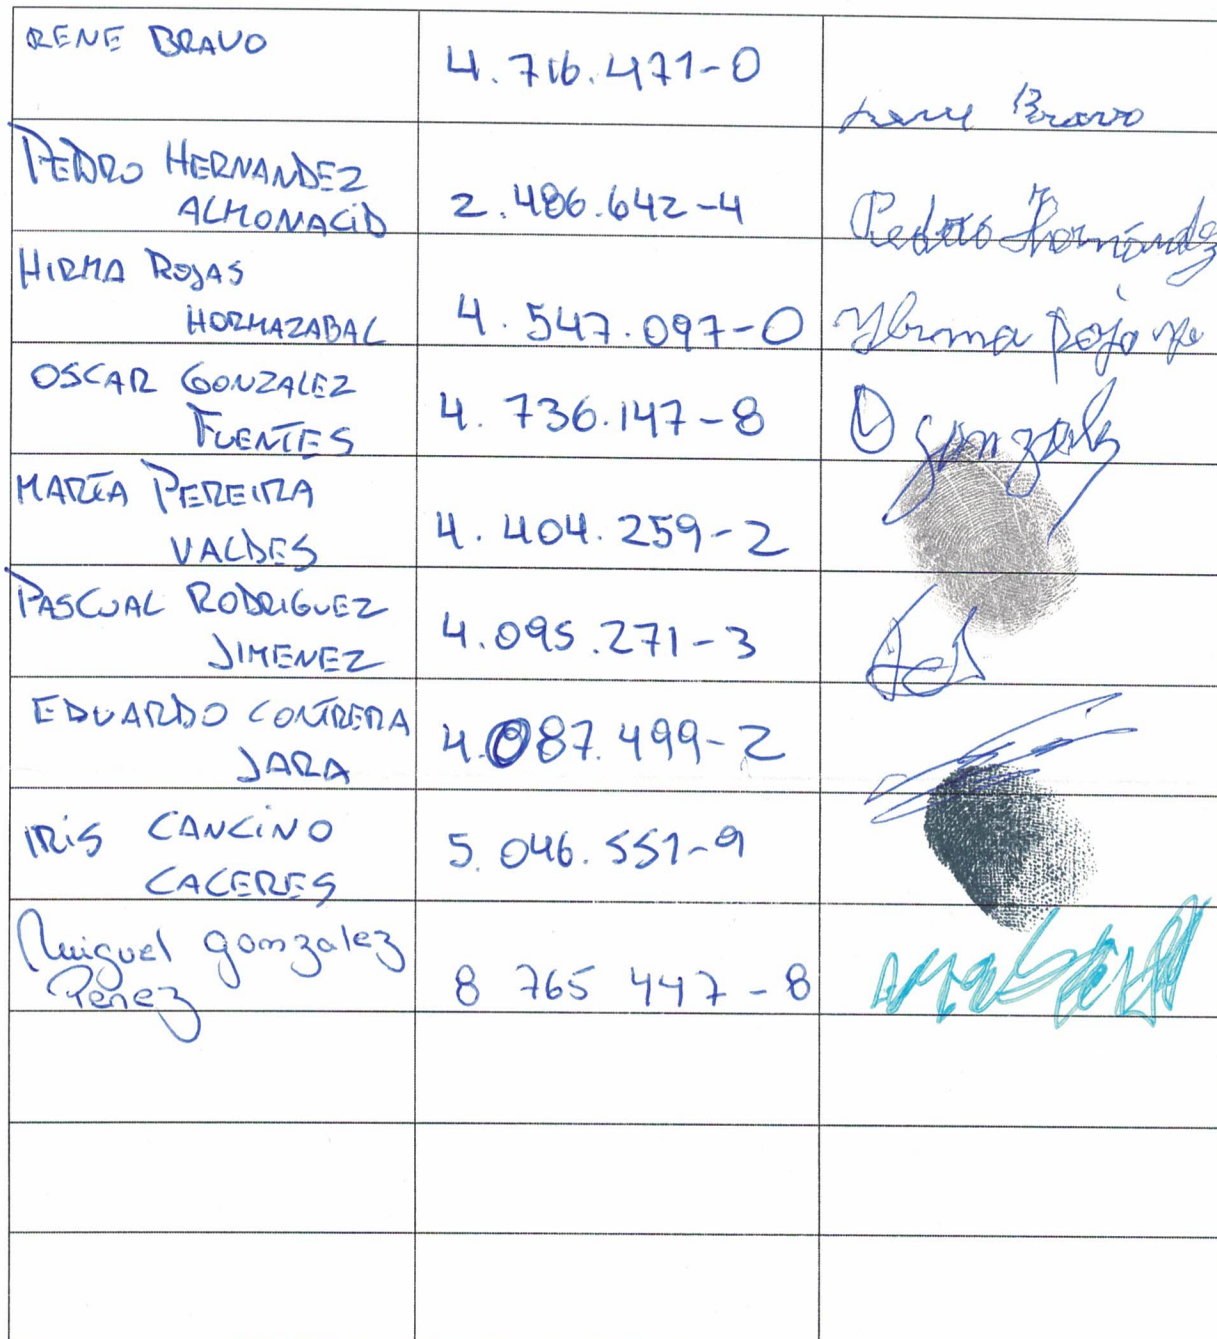 RENE BRAVO 4.716.471-0
Bravo
PEDRO HERNANDEZ
ALMONACID 2.486.642-4 Pedro Hernández
HIRMA ROJAS
HORMAZABAL 4.547.097-0
OSCAR GONZALEZ
FUENTES 4.736.147-8 O Gonzalez
MARÍA PEREIRA
VALDES 4.404.259-2
PASCUAL RODRIGUEZ
JIMENEZ 4.095.271-3
EDUARDO CONTRERA
JARA 4.087.499-2
IRIS CANCINO
CACERES 5.046.551-9
Muiguel gonzalez
Perez 8 765 447-8